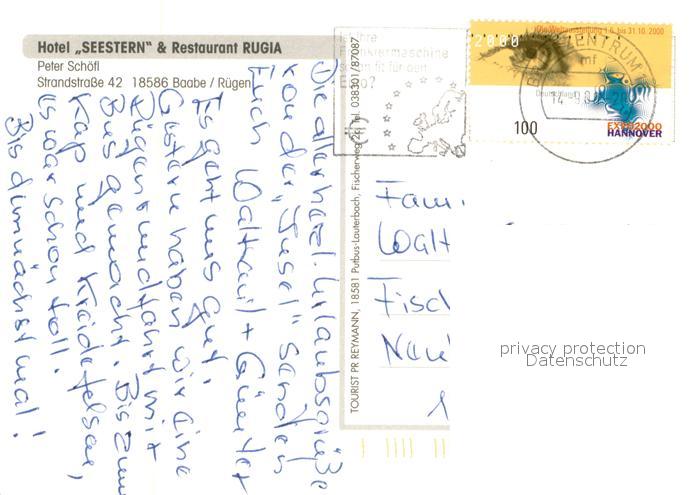 Hotel „SEESTERN“ & Restaurant RUGIA
Peter Schöfl
Strandstraße 42 18586 Baabe / Rügen
Die allerherzl. Urlaubsgrüße
von der „Insel" senden
Euch Waltraut + Günter
Es geht uns gut.
Gestern haben wir eine
Rügenrundfahrt mit
Bus gemacht. Bis zum
Kap und Kreidefelsen,
es war schon toll.
Bis demnächst mal!
TOURIST PR REYMANN, 18581 Putbus-Lauterbach, Fischerweg 2b, Tel. 038301/87087
Ist Ihre
Frankiermaschine
schon fit für den
Euro?
2000
Die Weltausstellung 1.6. bis 31.10. 2000
ZENTRUM
mf
Deutschland
100
EXPO2000
HANNOVER
Fam.
Walt
Fisch
1
privacy protection
Datenschutz